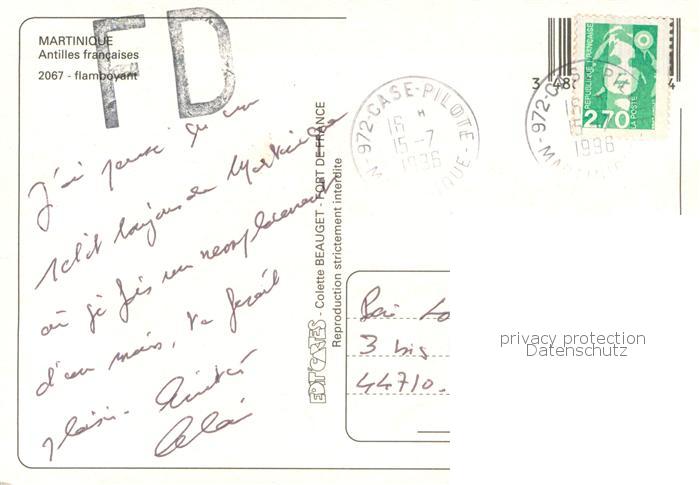 MARTINIQUE
Antilles françaises
2067 - flamboyant
FD
J'ai pensé qu'un
toujours de Martinique
où je fais un remplacement
d'un mois, te ferait
plaisir. Amitiés
Alain
EDIT'CARTES - Colette BEAUGET - FORT DE FRANCE
Reproduction strictement interdite
972-CASE-PILOTE
16 H
15-7
1996
MARTINIQUE
3 48 4
REPUBLIQUE FRANÇAISE
2.70
LA POSTE
972-CASE-PILOTE
1996
MARTINIQUE
3 bis
44710
privacy protection
Datenschutz